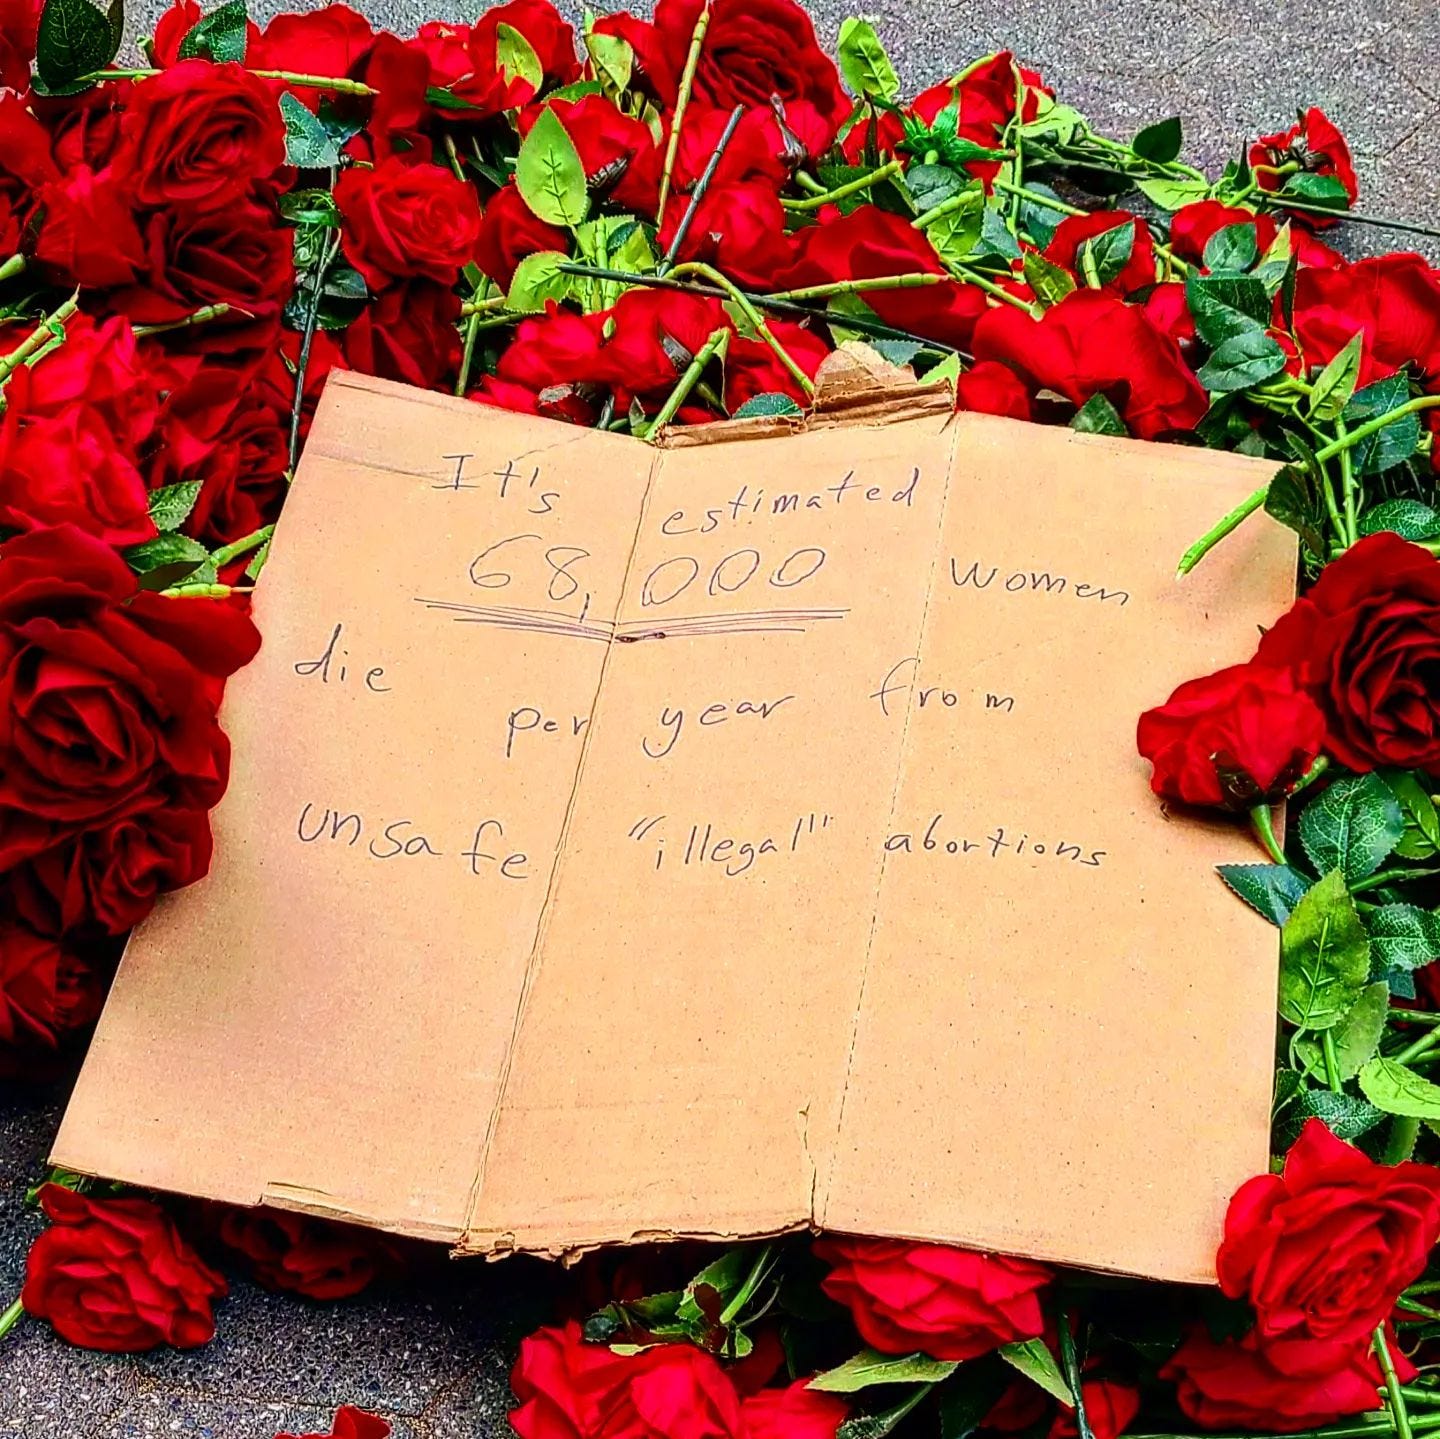 It's estimated
68,000 women
die per year from
unsafe "illegal" abortions